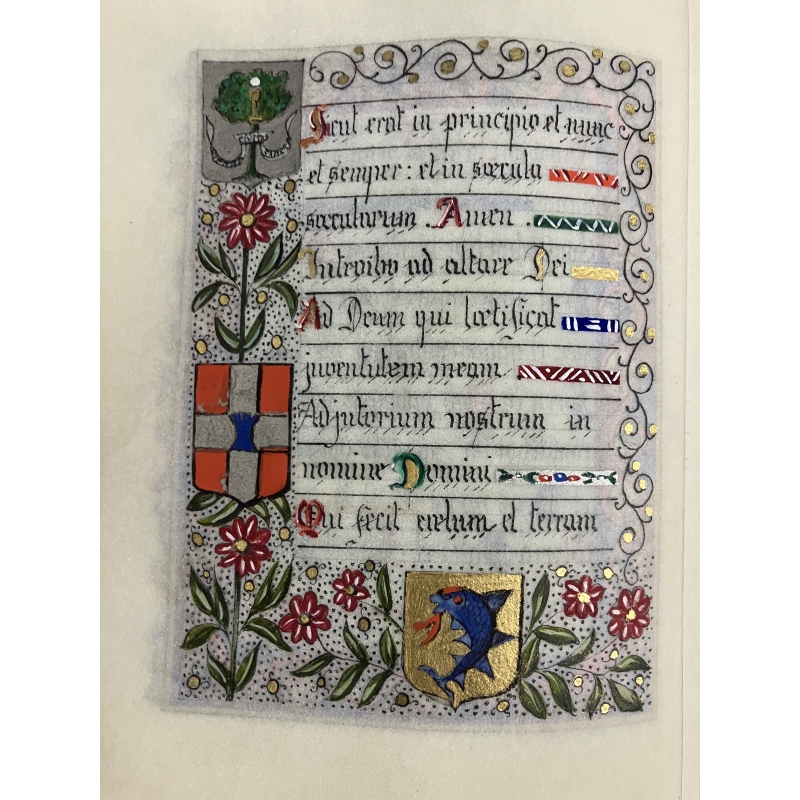 Sicut erat in principio et nunc
et semper: et in sœcula
sœculorum. Amen.
Introibo ad altare Dei
Ad Deum qui lœtificat
juventutem meam
Adjutorium nostrum in
nomine Domini
Qui fecit cœlum et terram